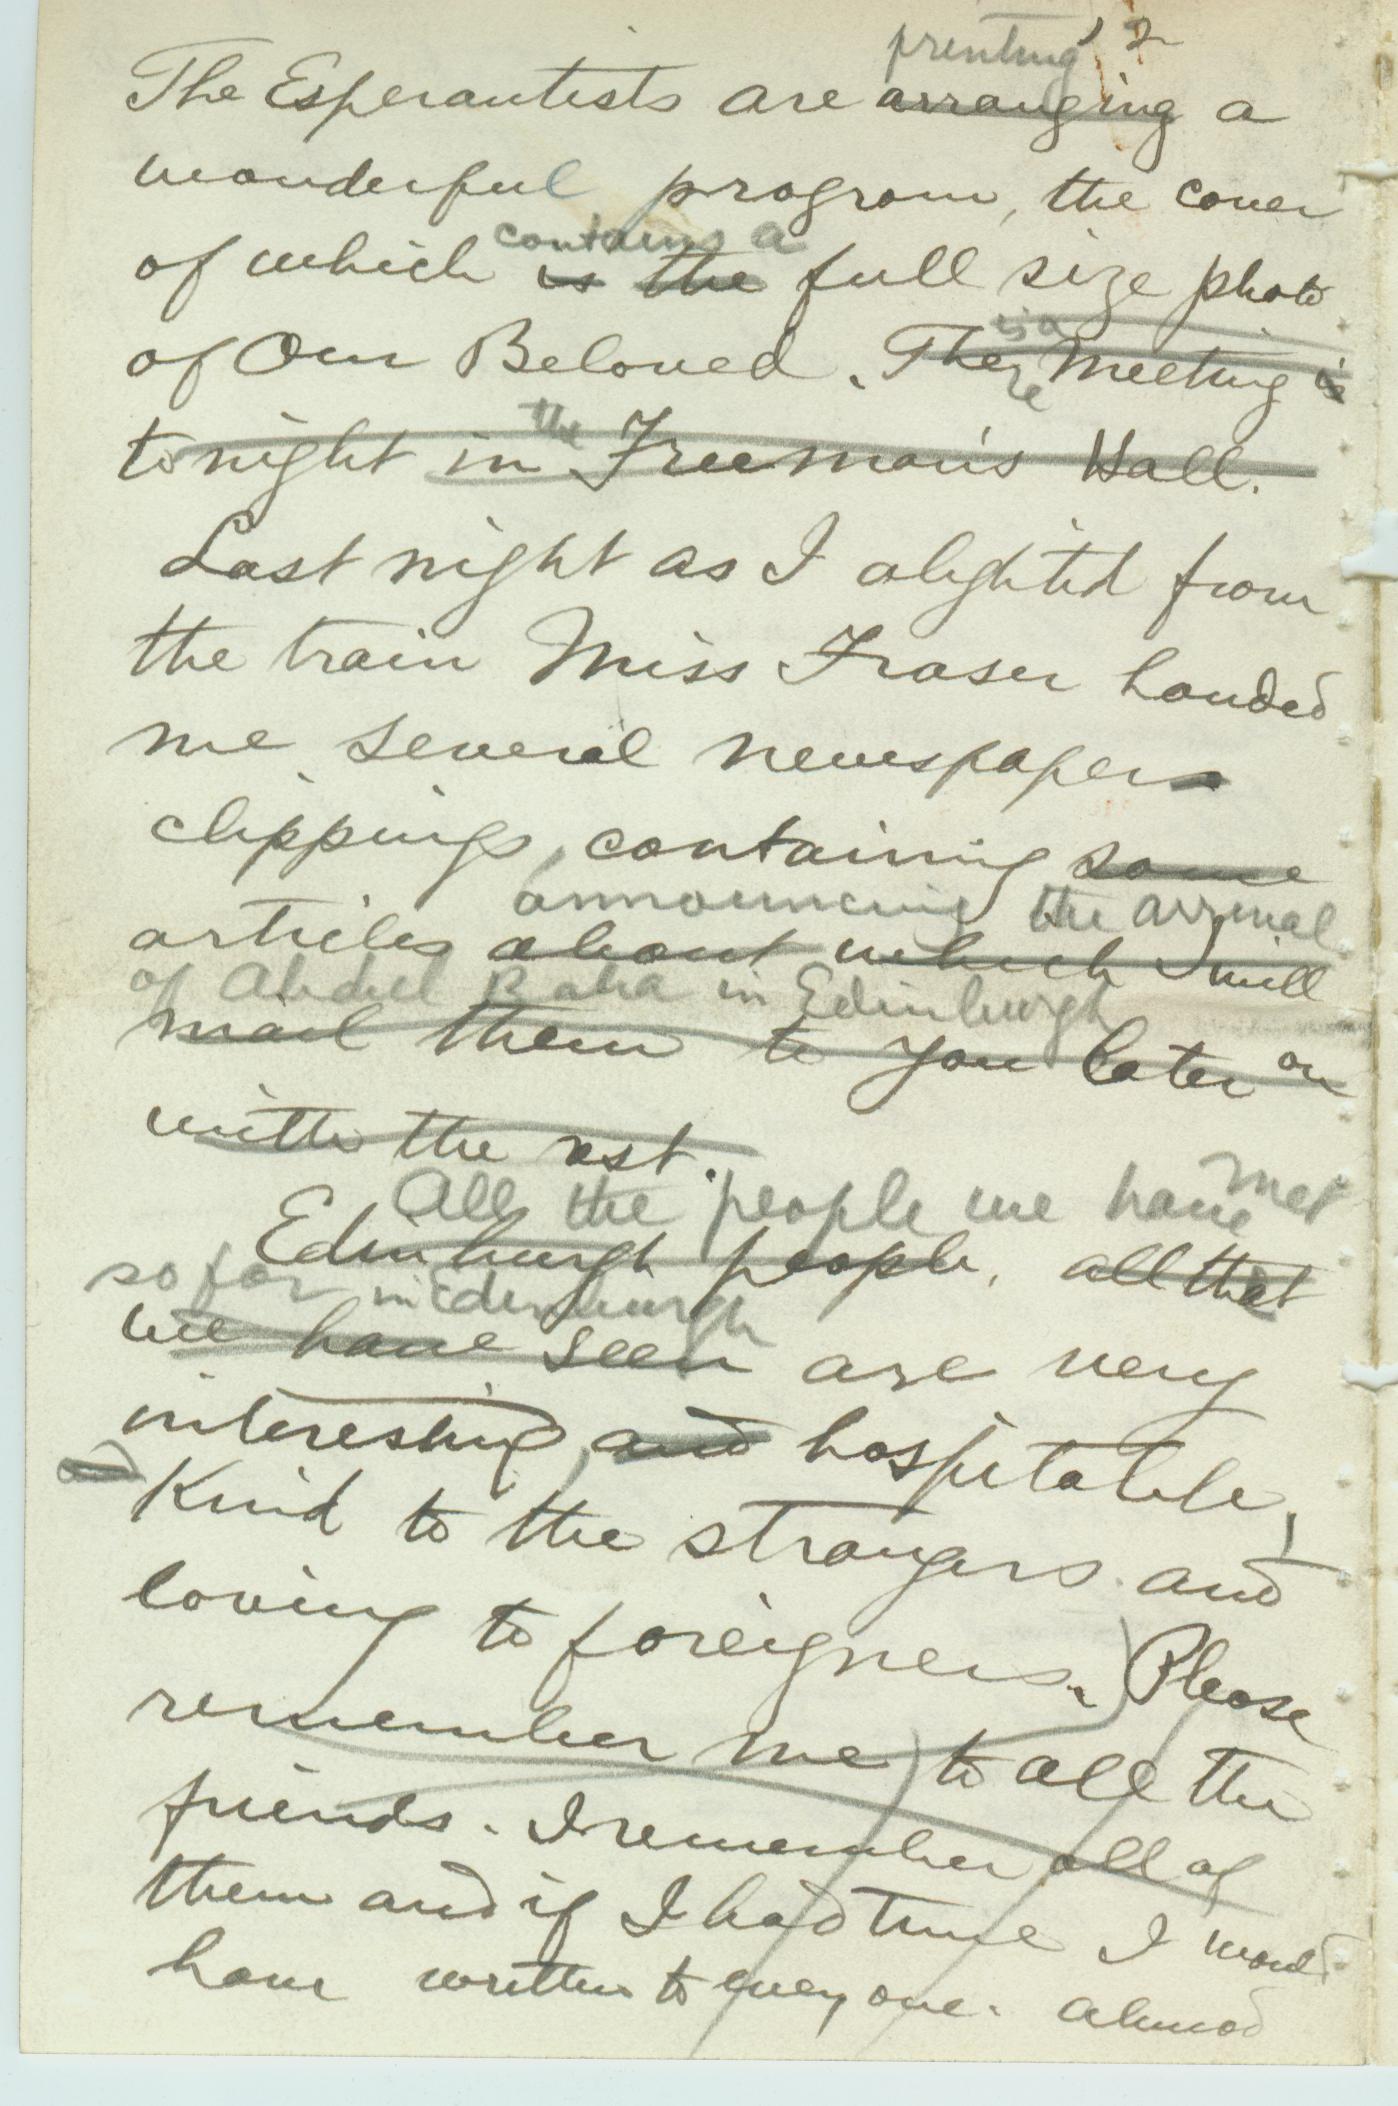 printing 12
The Esperantists are arranging a
wonderful program, the cover
contains a
of which is the full size photo
is a
of Our Beloved. There Meeting is
the
tonight in Freeman's Hall.
Last night as I alighted from
the train Miss Fraser handed
me several newspapers
clippings, containing some
announcing the arrival
articles about which I will
of Abdul Baha in Edinburgh
mail them to you later on
with the rest.
All the people we have met
Edinburgh people, all that
so far in Edinburgh
we have seen are very
interesting, and hospitable,
and Kind to the strangers and
loving to foreigners. Please
remember me to all the
friends. I remember all of
them and if I had time I would
have written to everyone. Ahmad